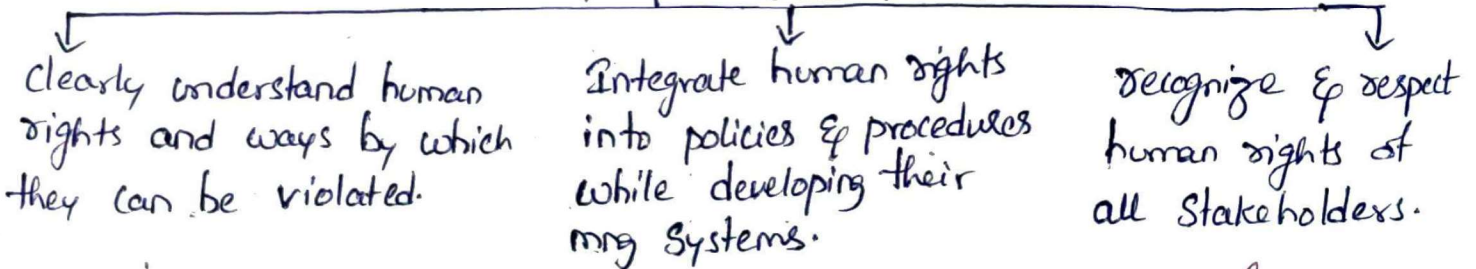 Clearly understand human
rights and ways by which
they can be violated.
Integrate human rights
into policies & procedures
while developing their
mng Systems.
recognize & respect
human rights of
all Stakeholders.